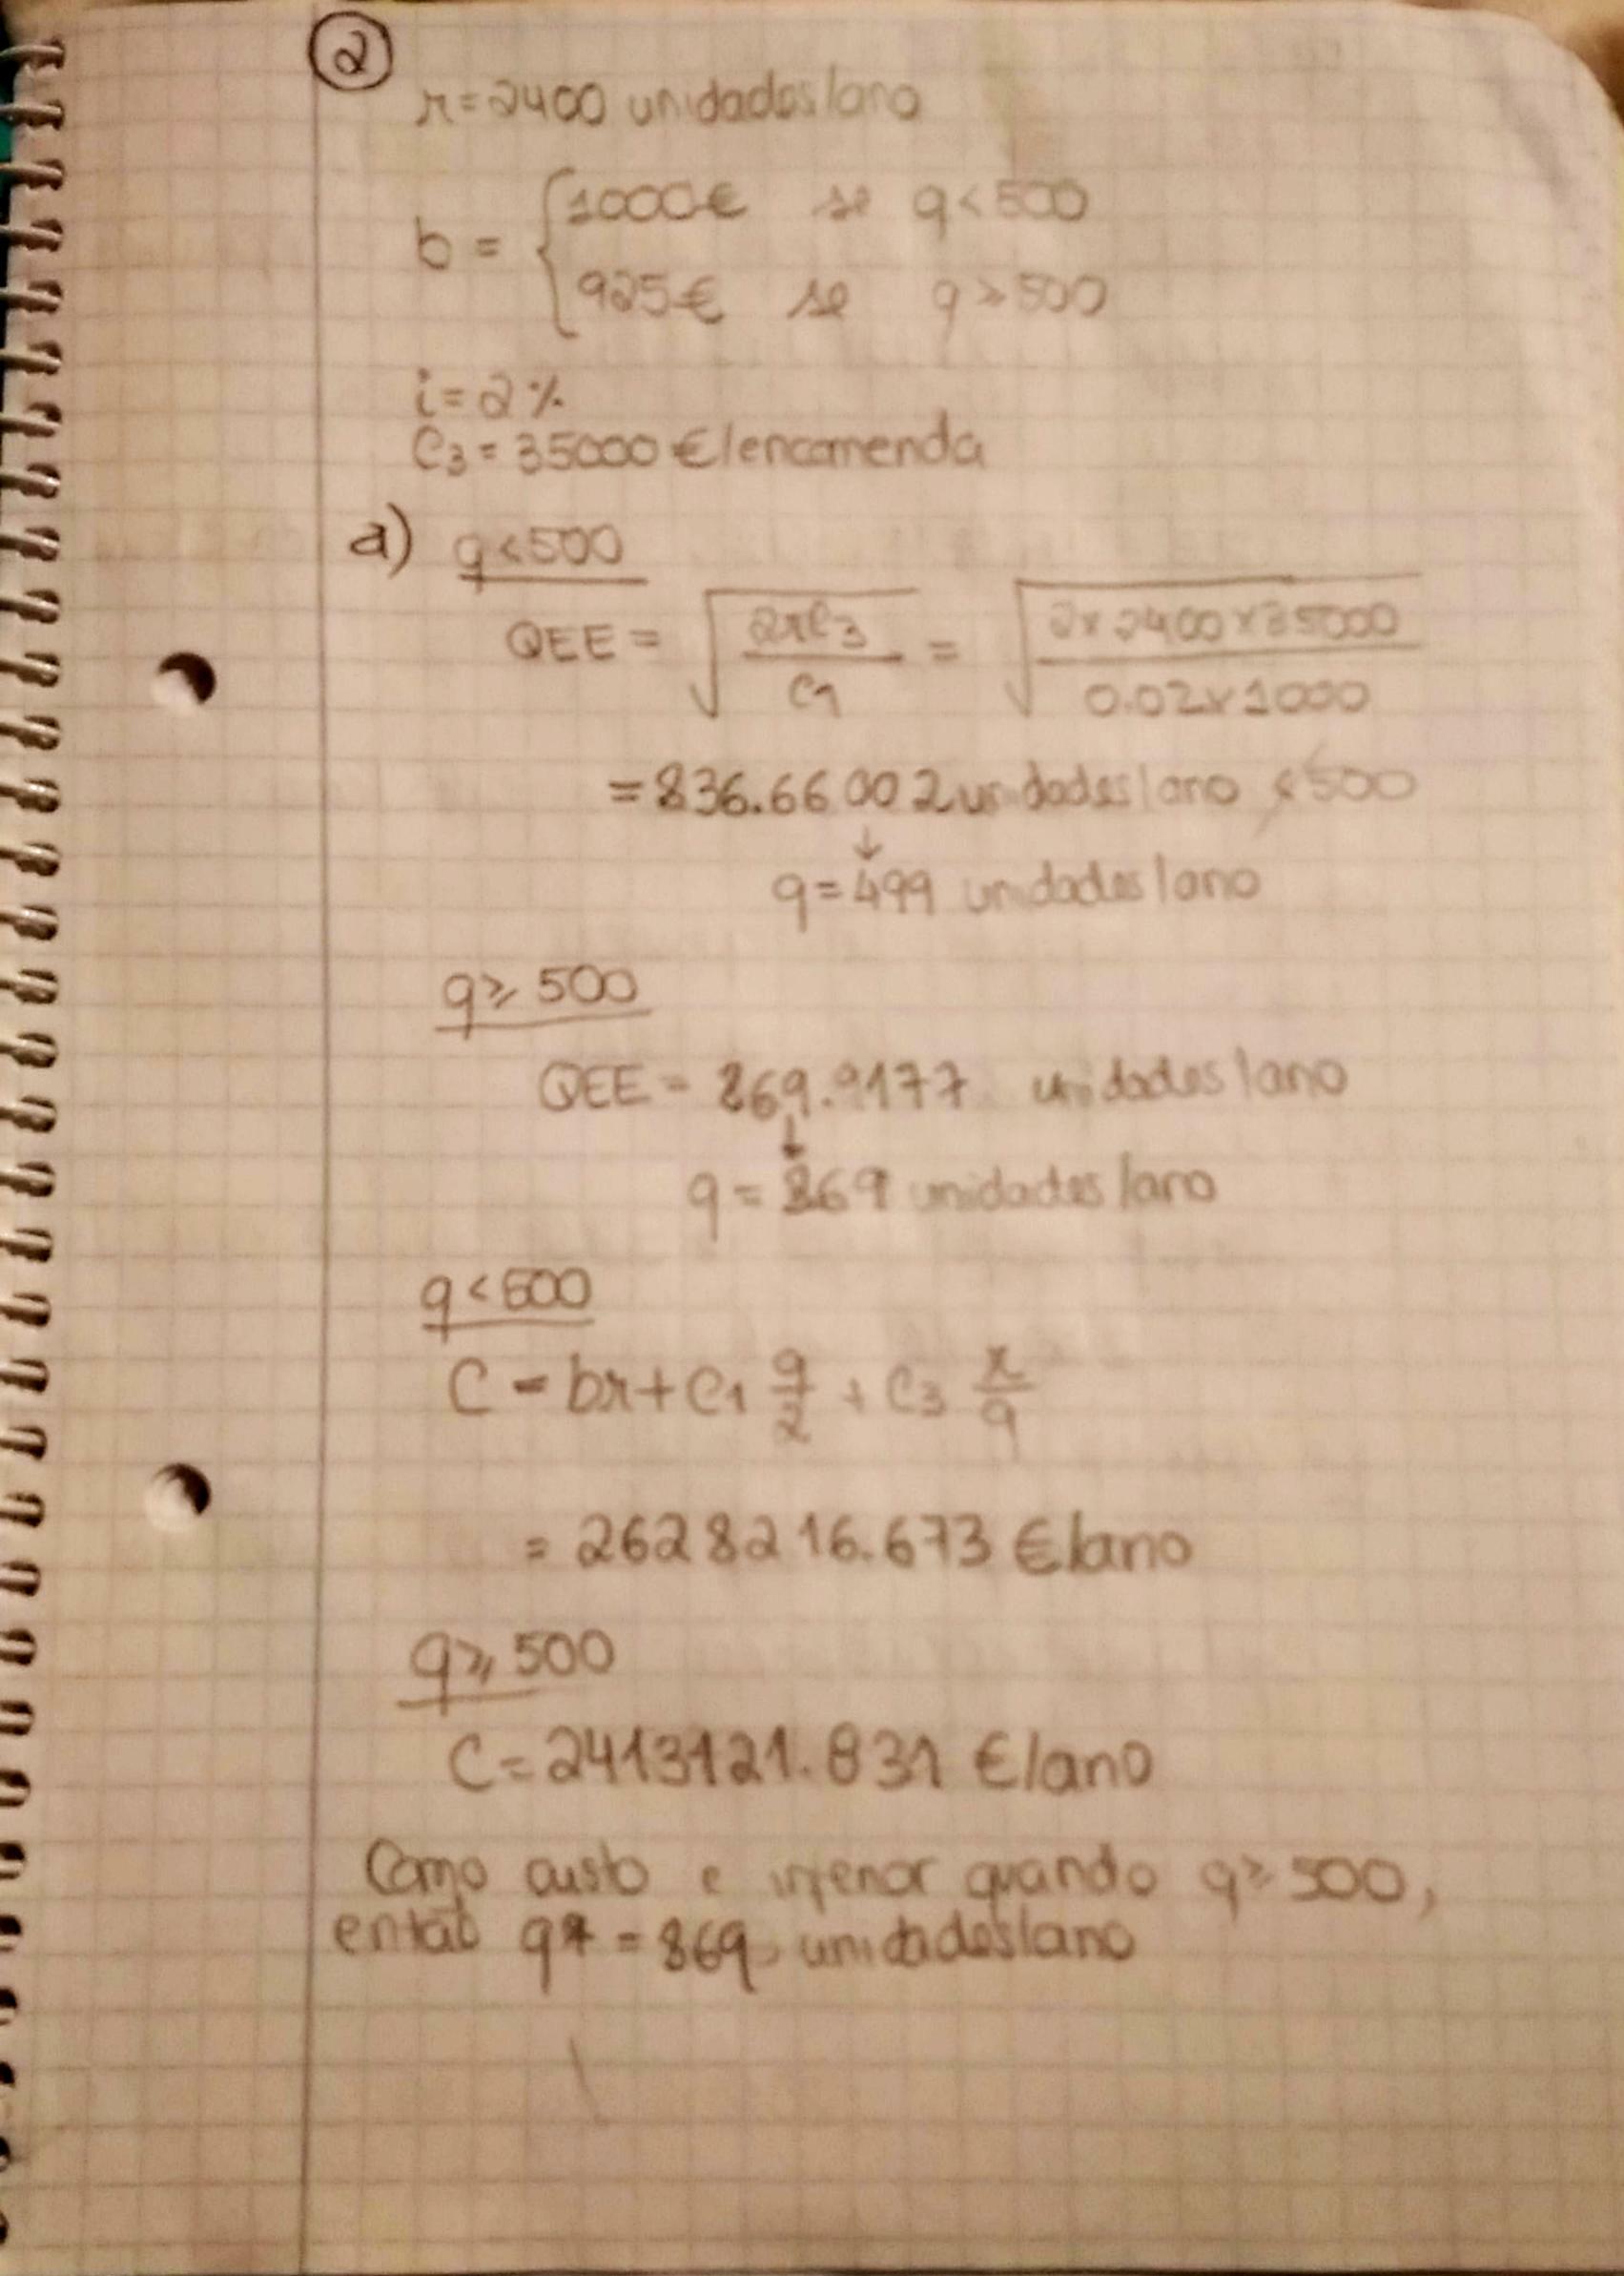 2
r = 2400 unidades/ano
b = { 1000€ se q < 500
925€ se q ≥ 500
i = 2%
C3 = 35000 €/encomenda
a) q < 500
QEE = √(2rC3 / C1) = √(2 x 2400 x 35000 / 0.02 x 1000)
= 836.66002 unidades/ano ≮ 500
↓
q = 499 unidades/ano
q ≥ 500
QEE = 869.9177 unidades/ano
↓
q = 869 unidades/ano
q < 500
C = br + C1 q/2 + C3 r/q
= 2628216.673 €/ano
q ≥ 500
C = 2413121.831 €/ano
Como custo e inferior quando q ≥ 500,
então q* = 869 unidades/ano